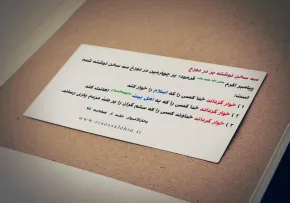 سه سخن نوشته بر در دوزخ
پیامبر اکرم فرمود: بر چهارمین در دوزخ سه سخن نوشته شده
است:
۱) خوار گرداند خدا کسی را که اسلام را خوار کند.
۲) خوار گرداند خدا کسی را که به اهل بیت اهانت کند.
۳) خوار گرداند خداوند کسی را که ستم گران را بر ضد مردم یاری رساند.
بحارالانوار جلد ۸ صفحه